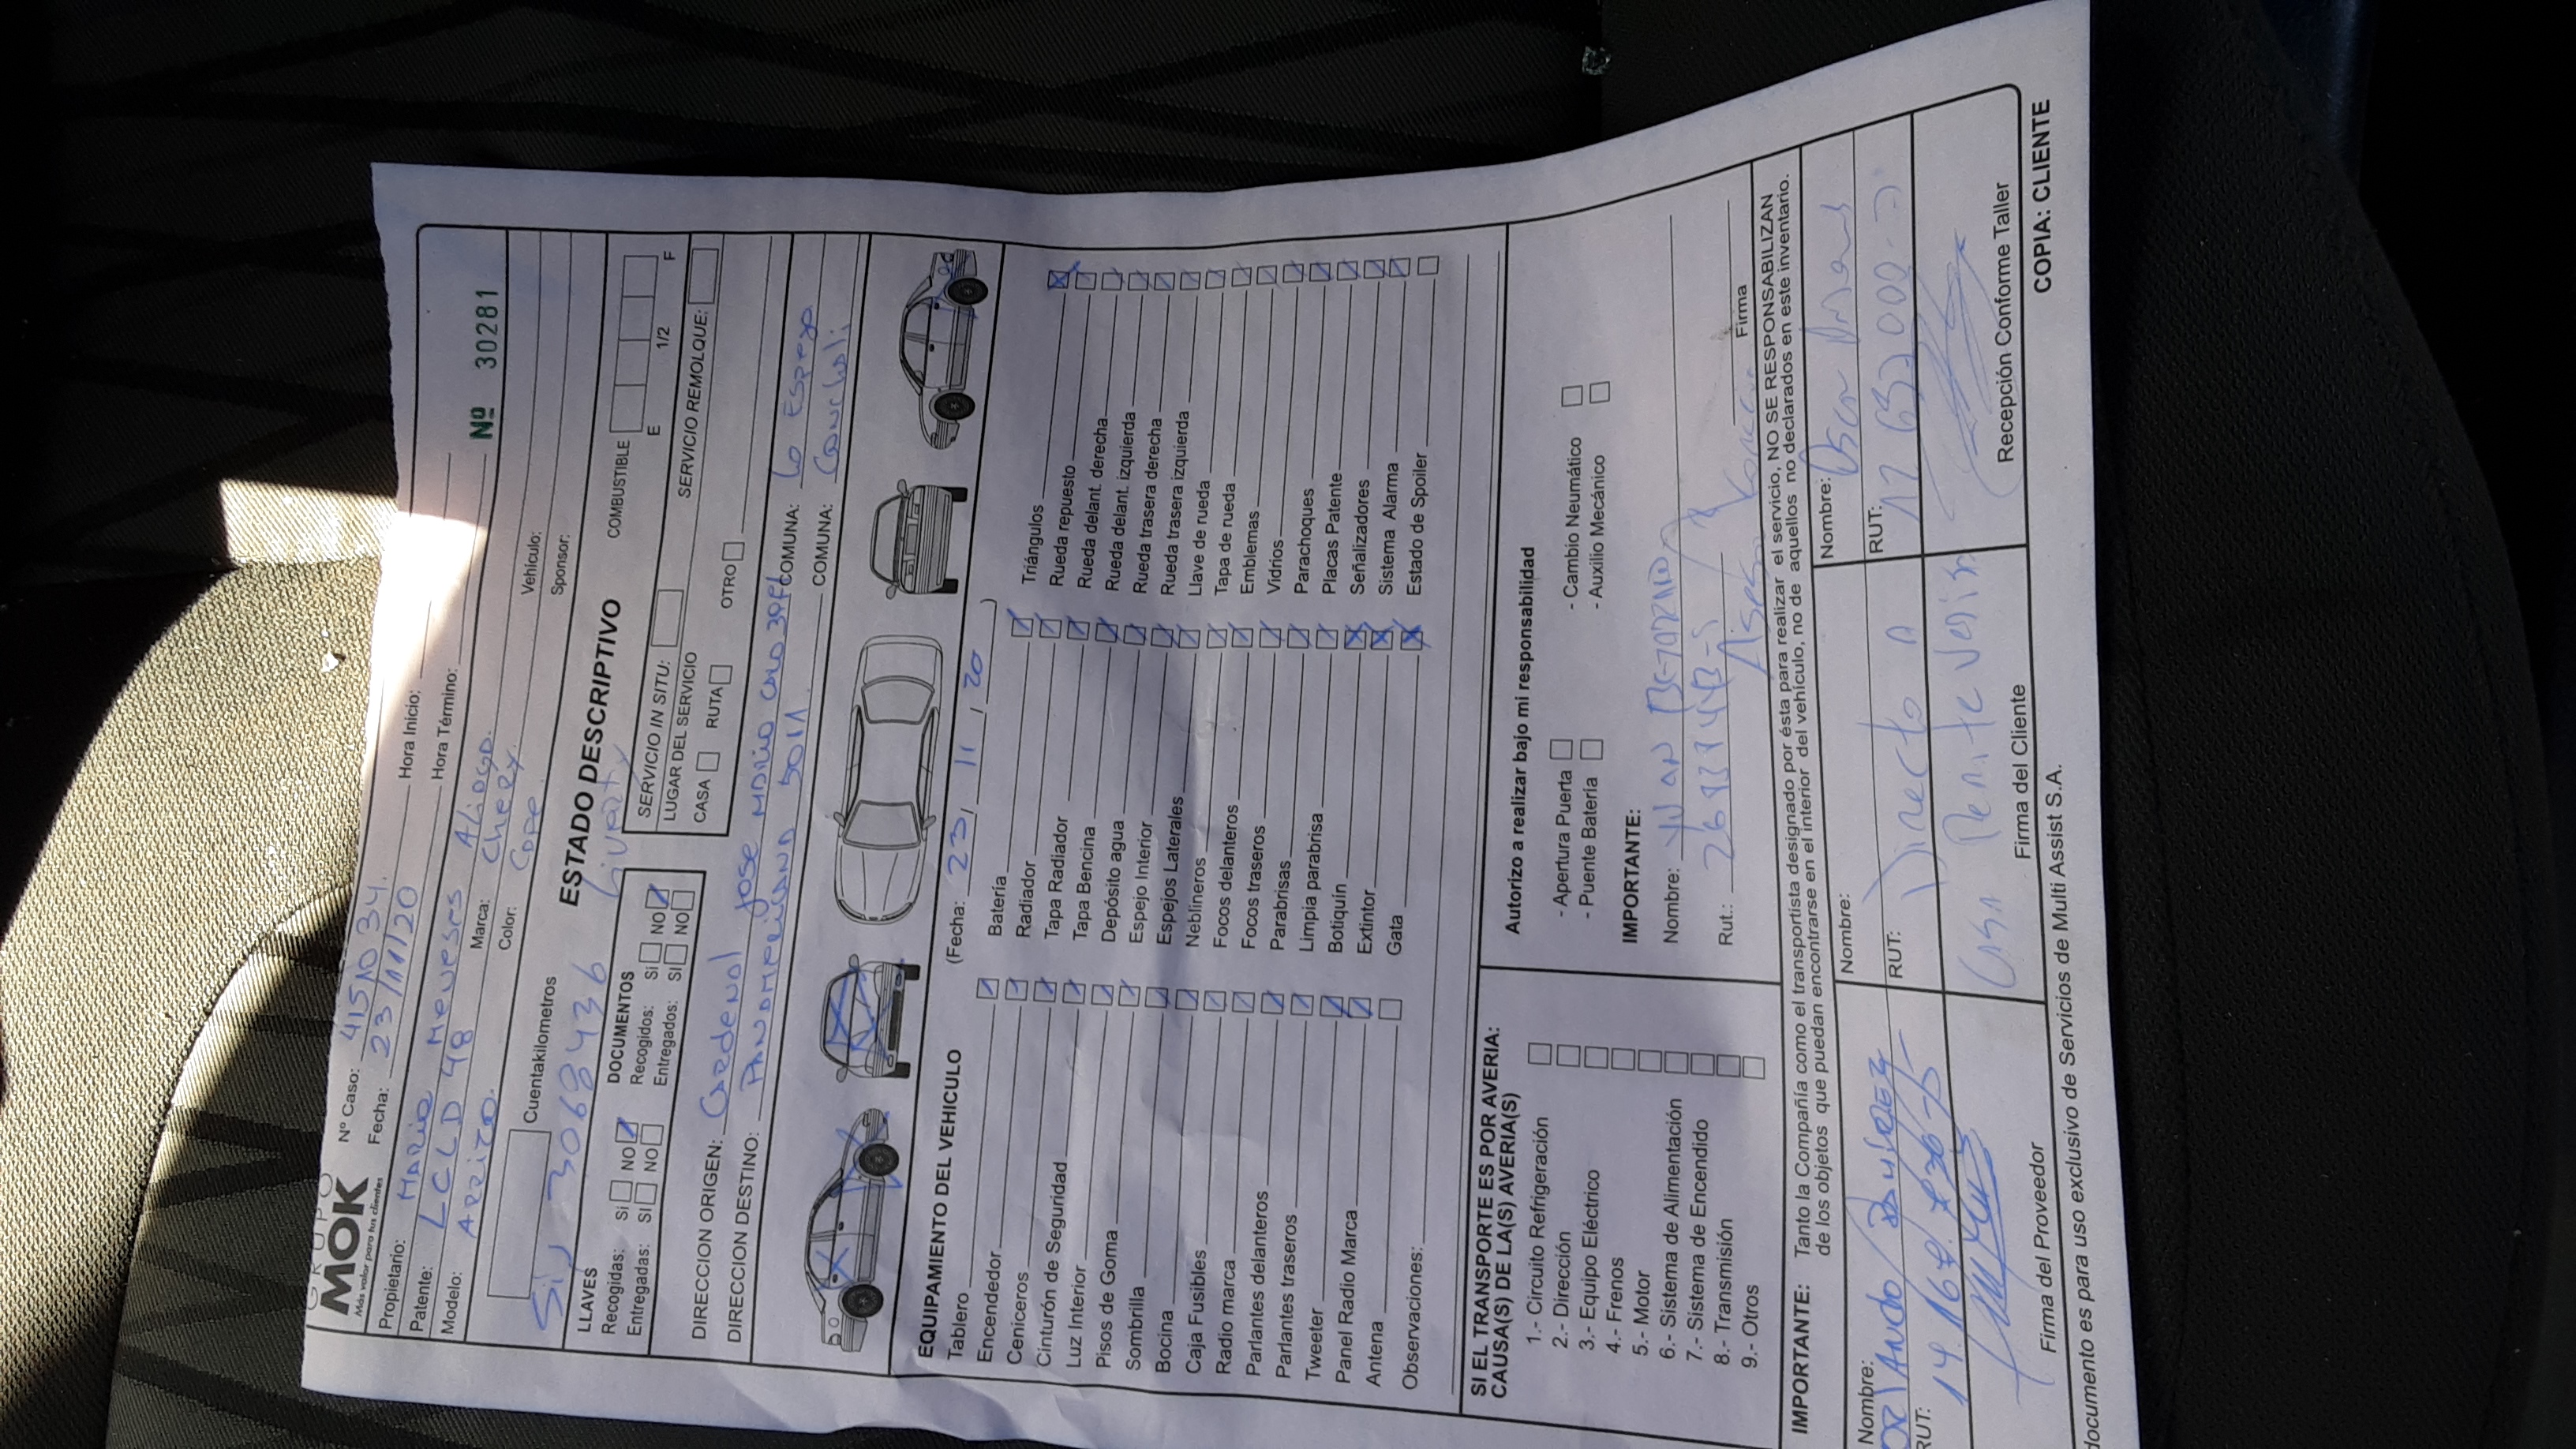 GRUPO
MOK
Más valor para tus clientes
Nº Caso: 41510 34.
Fecha: 23/11/20 Hora Inicio:
Nº 30281
Propietario: Mario Meneses Aliaga. Hora Término:
Patente: LCLD 48 Marca: Chery. Vehículo:
Modelo: Arrizo. Color: Cafe Sponsor:
Cuentakilometros
ESTADO DESCRIPTIVO
COMBUSTIBLE
E 1/2 F
Sin 3068436 Liverty
LLAVES
Recogidas: Si NO
Entregadas: SI NO
DOCUMENTOS
Recogidos: Si NO
Entregados: SI NO
SERVICIO IN SITU:
SERVICIO REMOLQUE:
LUGAR DEL SERVICIO
CASA RUTA OTRO
DIRECCION ORIGEN: Cardenal Jose Maria Caro COMUNA: Lo Espejo
DIRECCION DESTINO: Panamericana 5011 COMUNA: Conchali
EQUIPAMIENTO DEL VEHICULO (Fecha: 23 / 11 / 20 )
Tablero
Encendedor
Ceniceros
Cinturón de Seguridad
Luz Interior
Pisos de Goma
Sombrilla
Bocina
Caja Fusibles
Radio marca
Parlantes delanteros
Parlantes traseros
Tweeter
Panel Radio Marca
Antena
Observaciones:
Batería
Radiador
Tapa Radiador
Tapa Bencina
Depósito agua
Espejo Interior
Espejos Laterales
Neblineros
Focos delanteros
Focos traseros
Parabrisas
Limpia parabrisa
Botiquín
Extintor
Gata
Triángulos
Rueda repuesto
Rueda delant. derecha
Rueda delant. izquierda
Rueda trasera derecha
Rueda trasera izquierda
Llave de rueda
Tapa de rueda
Emblemas
Vidrios
Parachoques
Placas Patente
Señalizadores
Sistema Alarma
Estado de Spoiler
SI EL TRANSPORTE ES POR AVERIA:
CAUSA(S) DE LA(S) AVERIA(S)
1.- Circuito Refrigeración
2.- Dirección
3.- Equipo Eléctrico
4.- Frenos
5.- Motor
6.- Sistema de Alimentación
7.- Sistema de Encendido
8.- Transmisión
9.- Otros
Autorizo a realizar bajo mi responsabilidad
- Apertura Puerta - Cambio Neumático
- Puente Batería - Auxilio Mecánico
IMPORTANTE:
Nombre:
Rut.:
Firma
IMPORTANTE: Tanto la Compañía como el transportista designado por ésta para realizar el servicio, NO SE RESPONSABILIZAN
de los objetos que puedan encontrarse en el interior del vehículo, no de aquellos no declarados en este inventario.
Nombre:
RUT:
Firma del Proveedor
Nombre:
RUT: Directo a
Casa
Firma del Cliente
Nombre:
RUT:
Recepción Conforme Taller
documento es para uso exclusivo de Servicios de Multi Assist S.A.
COPIA: CLIENTE